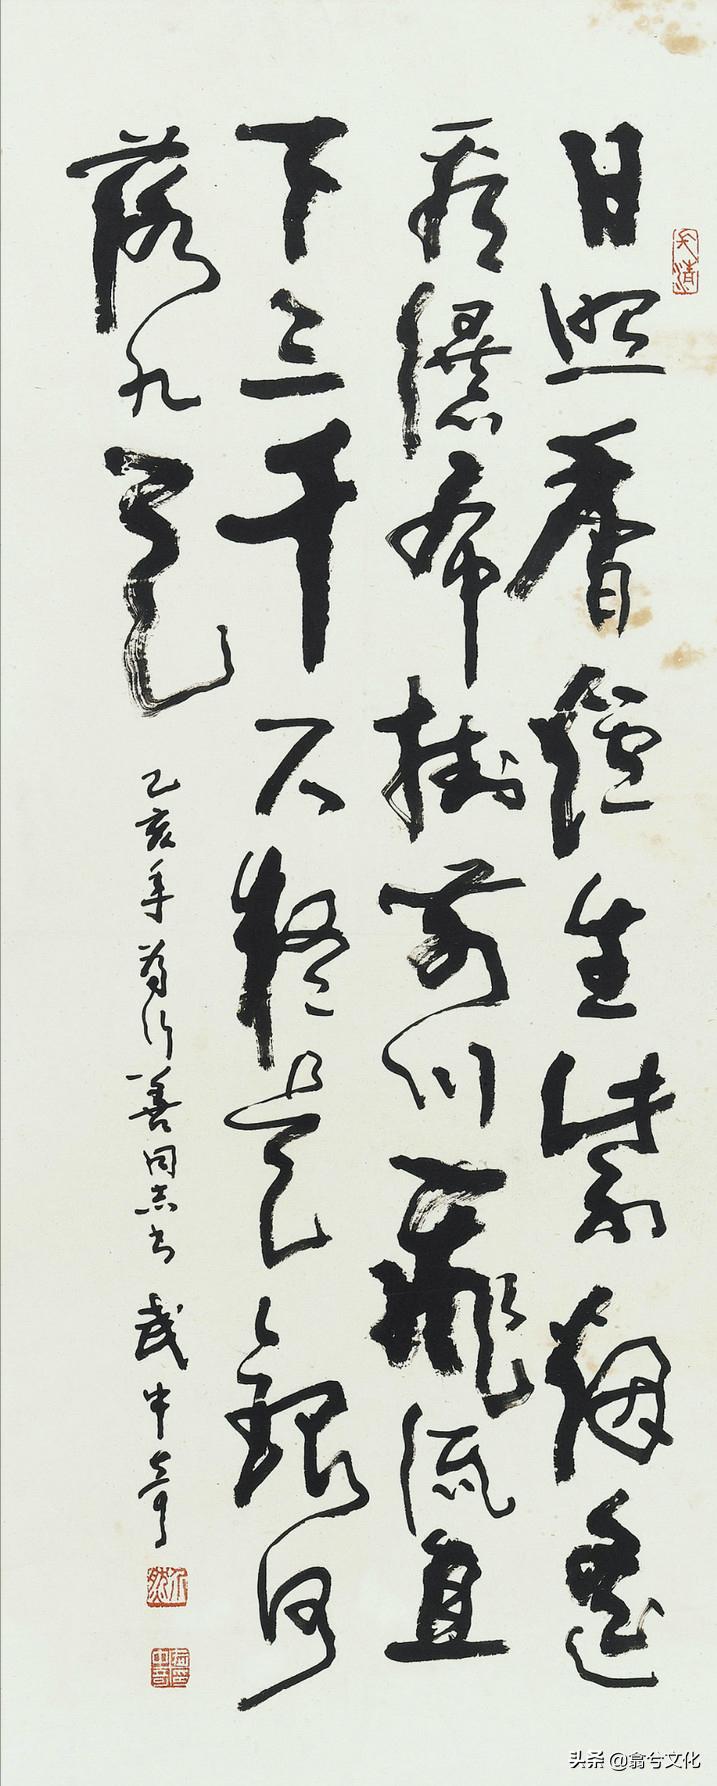 日照香爐生紫烟遙
看瀑布掛前川飛流直
下三千尺疑是銀河
落九天
乙亥年為行善同志书 武中奇
头条 @翕兮文化